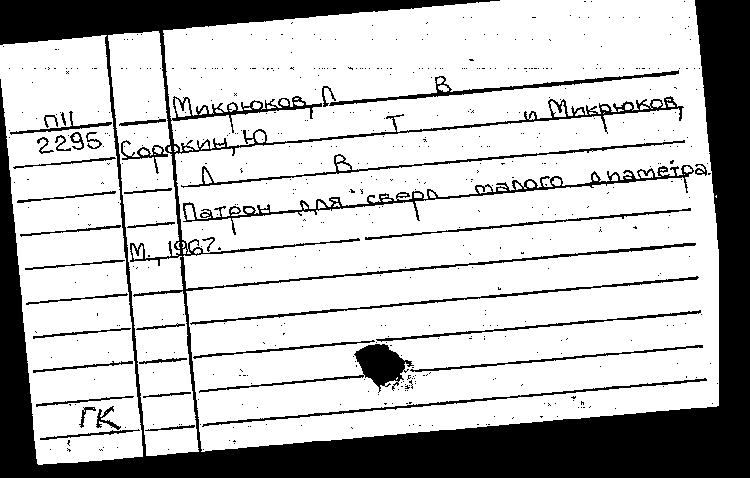 Микрюков, Л В
П11
2295 Сорокин, Ю Т и Микрюков,
Л В
Патрон для сверл малого диаметра.
М., 1967.
ГК